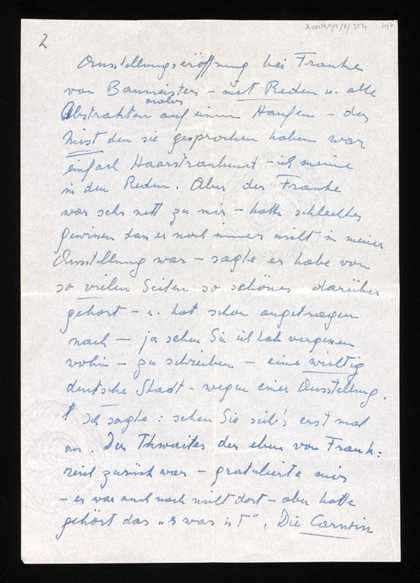 2
Ausstellungseröffnung bei Franke
von Baumeister – mit Reden u. alle
Abstrakten maler auf einem Haufen – der
Mist den sie gesprochen haben war
einfach Haarsträubend – ich meine
in den Reden. Aber der Franke
war sehr nett zu mir – hatte schlechtes
gewissen dass er noch immer nicht in meiner
Ausstellung war – sagte er habe von
so vielen Seiten so schönes darüber
gehört – u. hat schon angetragen
nach – ja sehen Sie ich hab vergessen
wohin – zu schreiben – eine wichtig
deutsche Stadt – wegen einer Ausstellung.
Ich sagte: sehen Sie sich's erst mal
an. Der Thwaites der eben von Frank=
reich zurück war – gratulierte mir
– er war auch noch nicht dort – aber hatte
gehört das „es was ist". Die